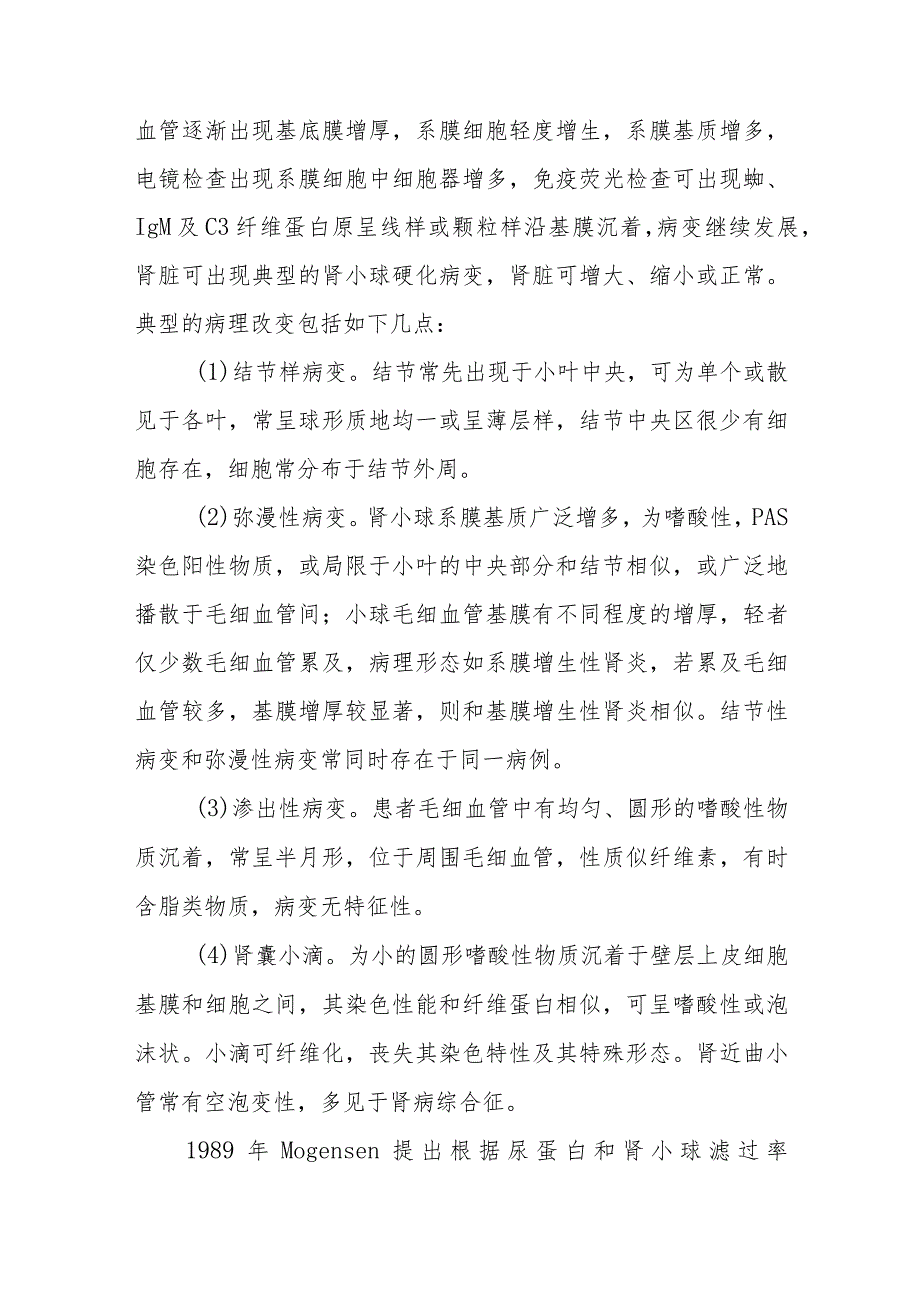 血管逐渐出现基底膜增厚，系膜细胞轻度增生，系膜基质增多，
电镜检查出现系膜细胞中细胞器增多，免疫荧光检查可出现蜘、
IgM及C3纤维蛋白原呈线样或颗粒样沿基膜沉着，病变继续发展，
肾脏可出现典型的肾小球硬化病变，肾脏可增大、缩小或正常。
典型的病理改变包括如下几点：
(1)结节样病变。结节常先出现于小叶中央，可为单个或散
见于各叶，常呈球形质地均一或呈薄层样，结节中央区很少有细
胞存在，细胞常分布于结节外周。
(2)弥漫性病变。肾小球系膜基质广泛增多，为嗜酸性，PAS
染色阳性物质，或局限于小叶的中央部分和结节相似，或广泛地
播散于毛细血管间；小球毛细血管基膜有不同程度的增厚，轻者
仅少数毛细血管累及，病理形态如系膜增生性肾炎，若累及毛细
血管较多，基膜增厚较显著，则和基膜增生性肾炎相似。结节性
病变和弥漫性病变常同时存在于同一病例。
(3)渗出性病变。患者毛细血管中有均匀、圆形的嗜酸性物
质沉着，常呈半月形，位于周围毛细血管，性质似纤维素，有时
含脂类物质，病变无特征性。
(4)肾囊小滴。为小的圆形嗜酸性物质沉着于壁层上皮细胞
基膜和细胞之间，其染色性能和纤维蛋白相似，可呈嗜酸性或泡
沫状。小滴可纤维化，丧失其染色特性及其特殊形态。肾近曲小
管常有空泡变性，多见于肾病综合征。
1989年Mogensen提出根据尿蛋白和肾小球滤过率